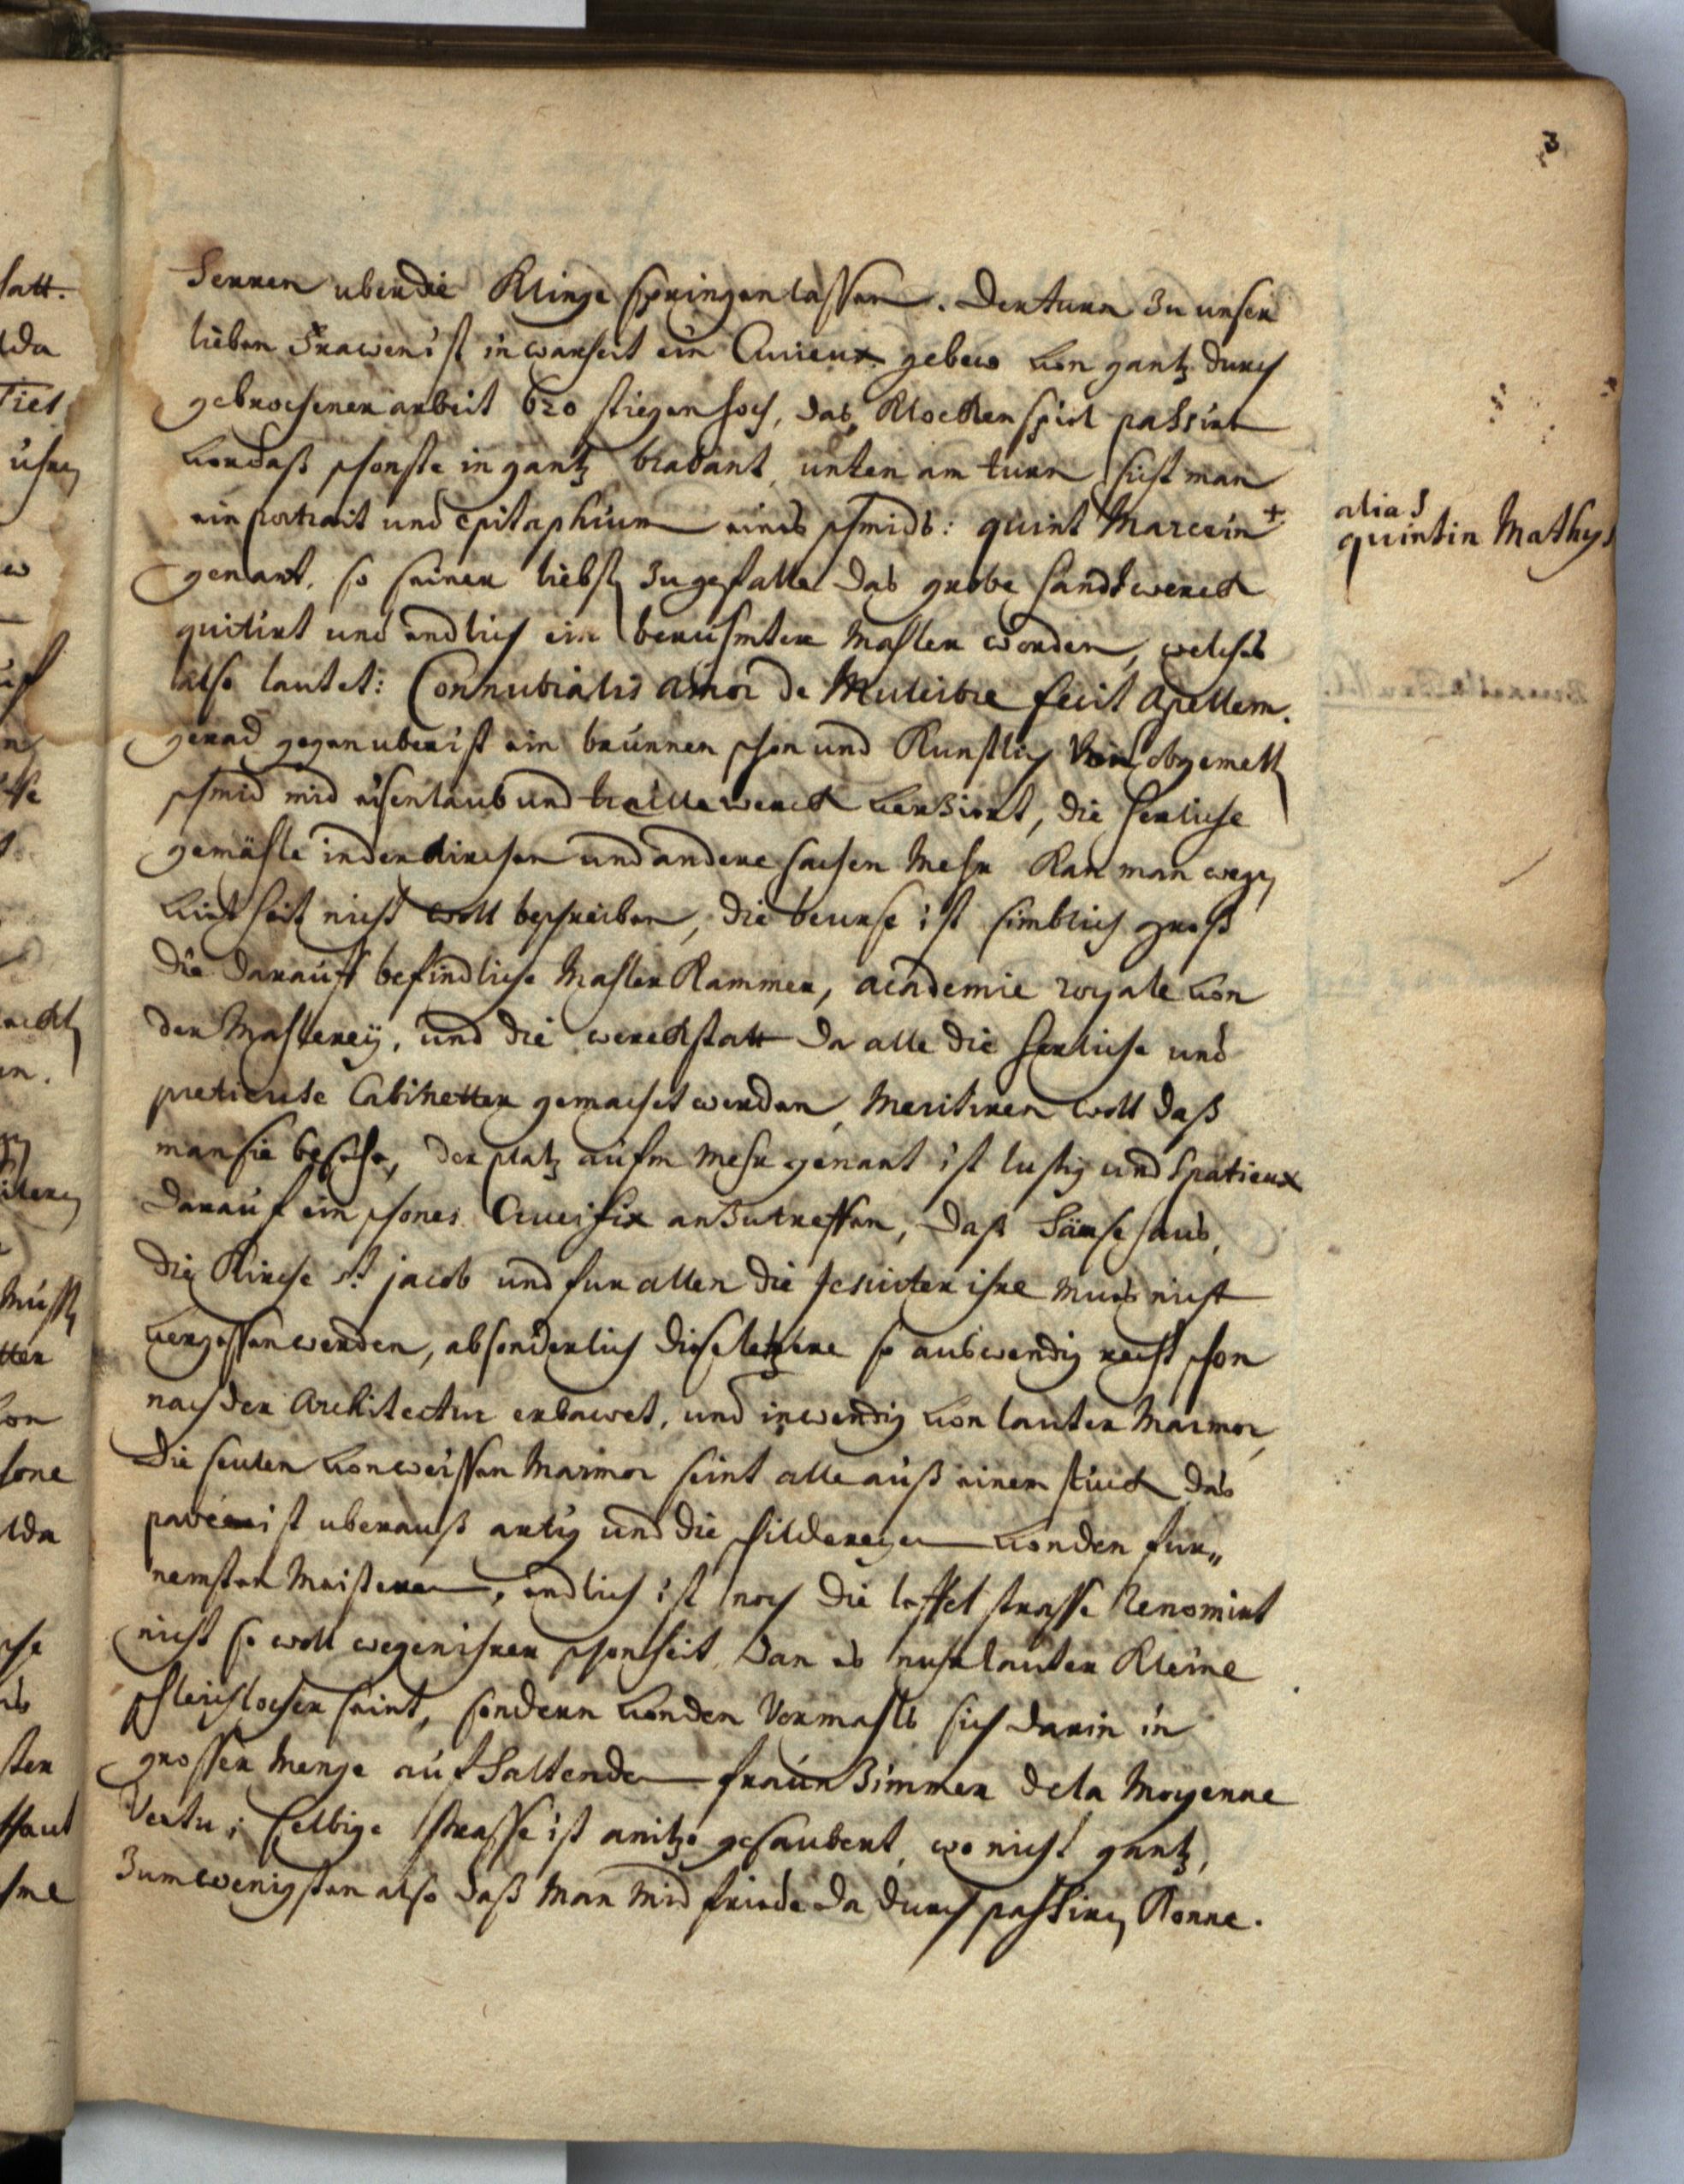 3
Herren uber die Klinge springen lassen. Der turn zu unser
lieben Frawen ist in warheit ein Curieux gebew von gantz durch
gebrochener arbeit 620 stiegen hoch, das Klockenspiel passirt
vor daß schonste in gantz brabant, unten am turn siht man
ein portrait und Epitaphium eines schmids: quint Marcein +
alias
quintin Mathys
genant, so seiner liebste zugefalle das grobe handtwerck
quitirt und endlich ein beruhmter Mahler worden, welches
also lautet: Connubialis amor de Mulcibre fecit Apellem.
gerad gegenuber ist ein brunnen schon und Kunstlich von obgemelt
schmid mid eisenlaub und trallewerck verzirt, die herliche
gemählte in der Kirchen und andere sachen mehr Kan man wegen
nicht woll beschreiben, die beurse ist simblich groß
die darauff befindliche Mahler Kammer, academie royale von
der Mahlereÿ, und die werckstatt da alle die herliche und
pretieuse Cabinetter gemachet werden, meritiren woll daß
man sie besehe, der platz aufm Mehr genant ist lustig und spatieux
darauf ein schones Crucifix anzutreffen, daß Hänsehaus,
die Kirche st. jacob und fur allen die Jesuiter ihre muß nicht
vergessen werden, absonderlich dise letzere so auswendig recht schon
nach der Architectur erbawet, und inwendig von lauter Marmor,
die seulen von weissen Marmor seint alle auß einem stuck das
pavé ist uberauß artig und die schildereyen von den fur„
nemsten Meisteren, endlich ist noch die leffel strasse renomirt
nicht so woll wegen ihrer schonheit, dan es nuhr lauter Kleine
schleichlocher seint, sondern von den Vormahls sich darin in
grosser Menge aufhaltenden fraunzimmer de la Moyenne
Vertu; selbige strasse ist anitzo gesaubert, wo nicht gantz,
zum wenigsten also daß man mid friede da durch passiren Konne.